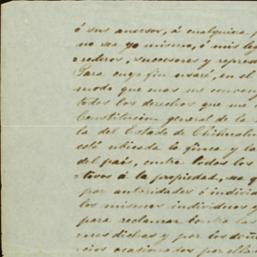 ó sus anexos, á cualquiera p
no sea yo mismo, ó mis leg
rederos, sucesores y repres
Para cuyo fin usaré, en el
modo que mas me conven
todos los derechos que me
Constitucion general de la
la del Estado de Chihuahu
está ubicada la finca y la
del pais, contra todos los
ctivos á la propiedad, sea q
por autoridades ó individ
los mismos individuos y
para reclamar contra las
res dichas y por los daño
cios ocasionados por ella